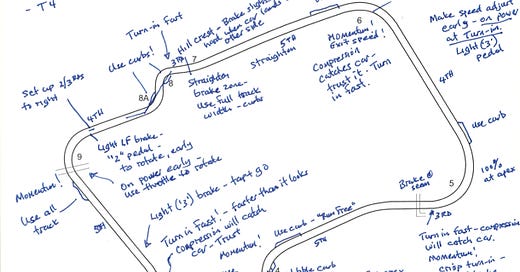 - T4
Turn-in Fast
Use curbs!
Hill crest - Brake slightly
wait when car lands
other side
3RD
7
8
8A
Set up 2/3rds
to right
4TH
Straighten
brake zone -
use full track
width - curb
5TH
straighten
6
Momentum!
Exit speed!
Compression
catches car -
trust it. Turn
in fast.
Make speed adjust
early - on power
at Turn-in.
Light ('3')
pedal
4TH
use curb
100%
at apex
5
Brake @
seam
3RD
Turn in Fast - compression
will catch car.
Momentum!
crisp turn-in -
9
Light LF brake -
"2" pedal -
to rotate, early
On power early -
use throttle to rotate
Momentum!
Use all
track
5th
Light ('3') brake - tap + go
Turn in Fast! - Faster than it looks
Compression will catch
car - Trust
Momentum!
Use curb - "Run Free"
5TH
4
curb